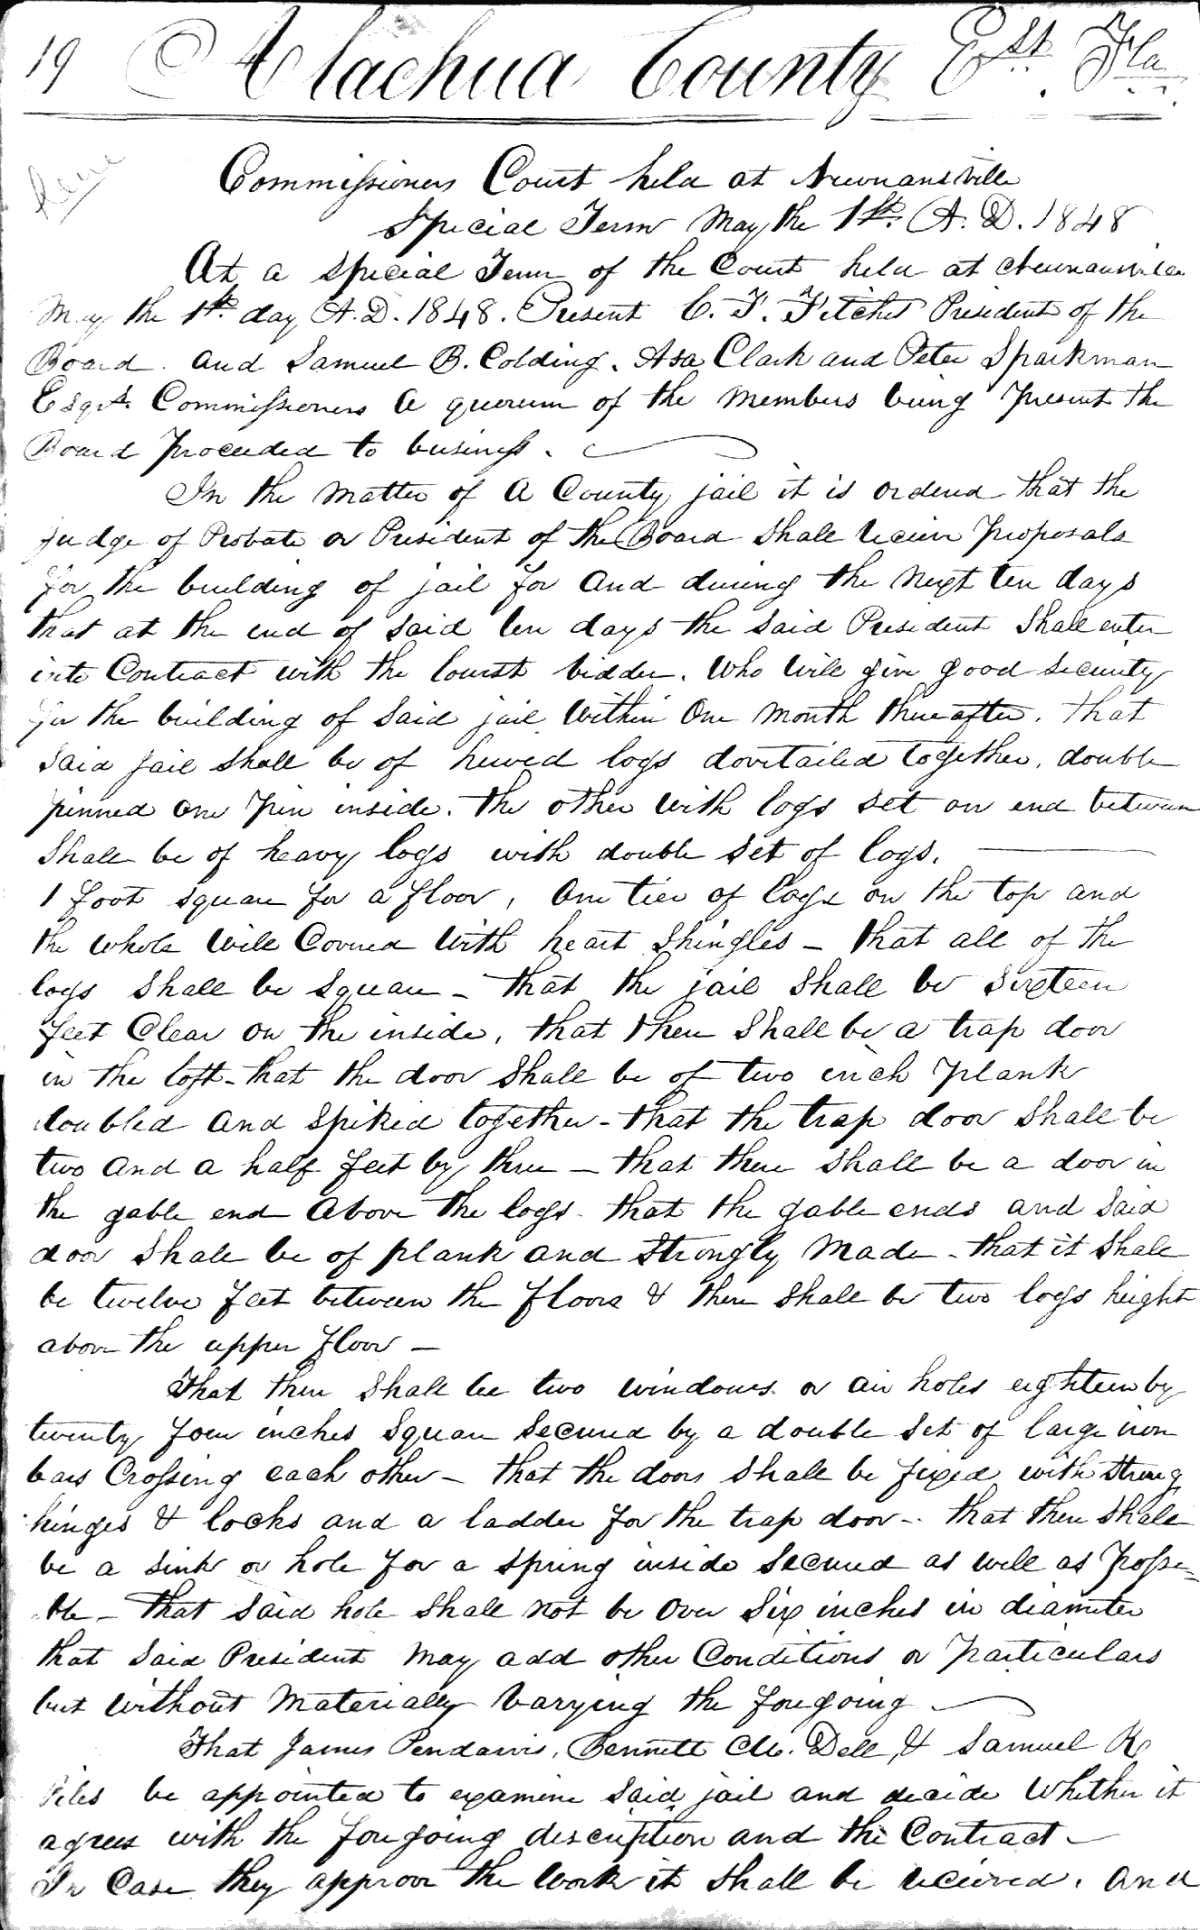 19 Alachua County Est. Fla.
Commissioners Court held at Newnansville
Special Term May the 1st. A. D. 1848
At a special Term of the Court held at Newnansville
May the 1st. day A.D. 1848. Present C. F. Fitchet President of the
Board. and Samuel B. Colding, Asa Clark and Peter Sparkman
Esqrs. Commissioners A quorum of the members being present the
Board proceeded to business.
In the matter of A County jail it is ordered that the
judge of Probate or President of the Board shall receive proposals
for the building of jail for and during the next ten days
that at the end of said ten days the said President shall enter
into Contract with the lowest bidder. Who will give good security
for the building of said jail within One month thereafter. that
said jail shall be of hewed logs dovetailed together, double
pinned one pin inside. the other with logs set on end between
Shall be of heavy logs with double set of logs.
1 foot square for a floor, one tier of logs on the top and
the whole will Covered with heart shingles - that all of the
logs shall be square - that the jail shall be sixteen
feet Clear on the inside, that there shall be a trap door
in the loft - that the door shall be of two inch plank
doubled and spiked together - that the trap door shall be
two and a half feet by three - that there shall be a door in
the gable end above the logs - that the gable ends and said
door shall be of plank and strongly made - that it shall
be twelve feet between the floors & there shall be two logs height
above the upper floor -
That there shall be two windows or air holes eighteen by
twenty four inches square secured by a double set of large iron
bars Crossing each other - that the doors shall be fixed with strong
hinges & locks and a ladder for the trap door - that there shall
be a sink or hole for a spring inside secured as well as possi=
ble - that said hole shall not be over six inches in diameter
that said President may add other Conditions or particulars
but without materially varying the foregoing
That James Pendarvis, Bennett M. Dell, & Samuel R
Piles be appointed to examine said jail and decide whether it
agrees with the foregoing description and the Contract -
In Case they approve the work it shall be received. and